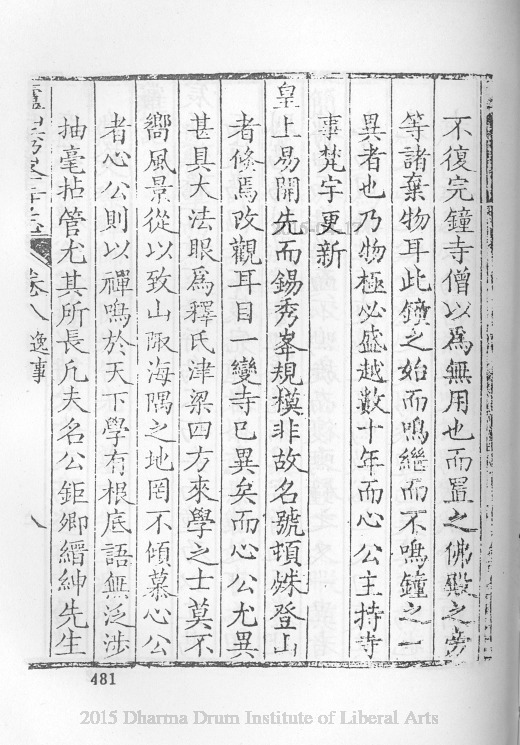 不復完鐘寺僧以爲無用也而置之佛殿之旁
等諸棄物耳此鐘之始而鳴繼而不鳴鐘之一
異者也乃物極必盛越數十年而心公主持寺
事梵宇更新
皇上易開先而錫秀峯規模非故名號頓殊登山
者條焉改觀耳目一變寺已異矣而心公尤異
甚具大法眼爲釋氏津梁四方來學之士莫不
嚮風景從以致山陬海隅之地罔不傾慕心公
者心公則以禪鳴於天下學有根底語無泛涉
抽毫拈管尤其所長凡夫名公鉅卿縉紳先生
卷八 逸事 八
481
2015 Dharma Drum Institute of Liberal Arts